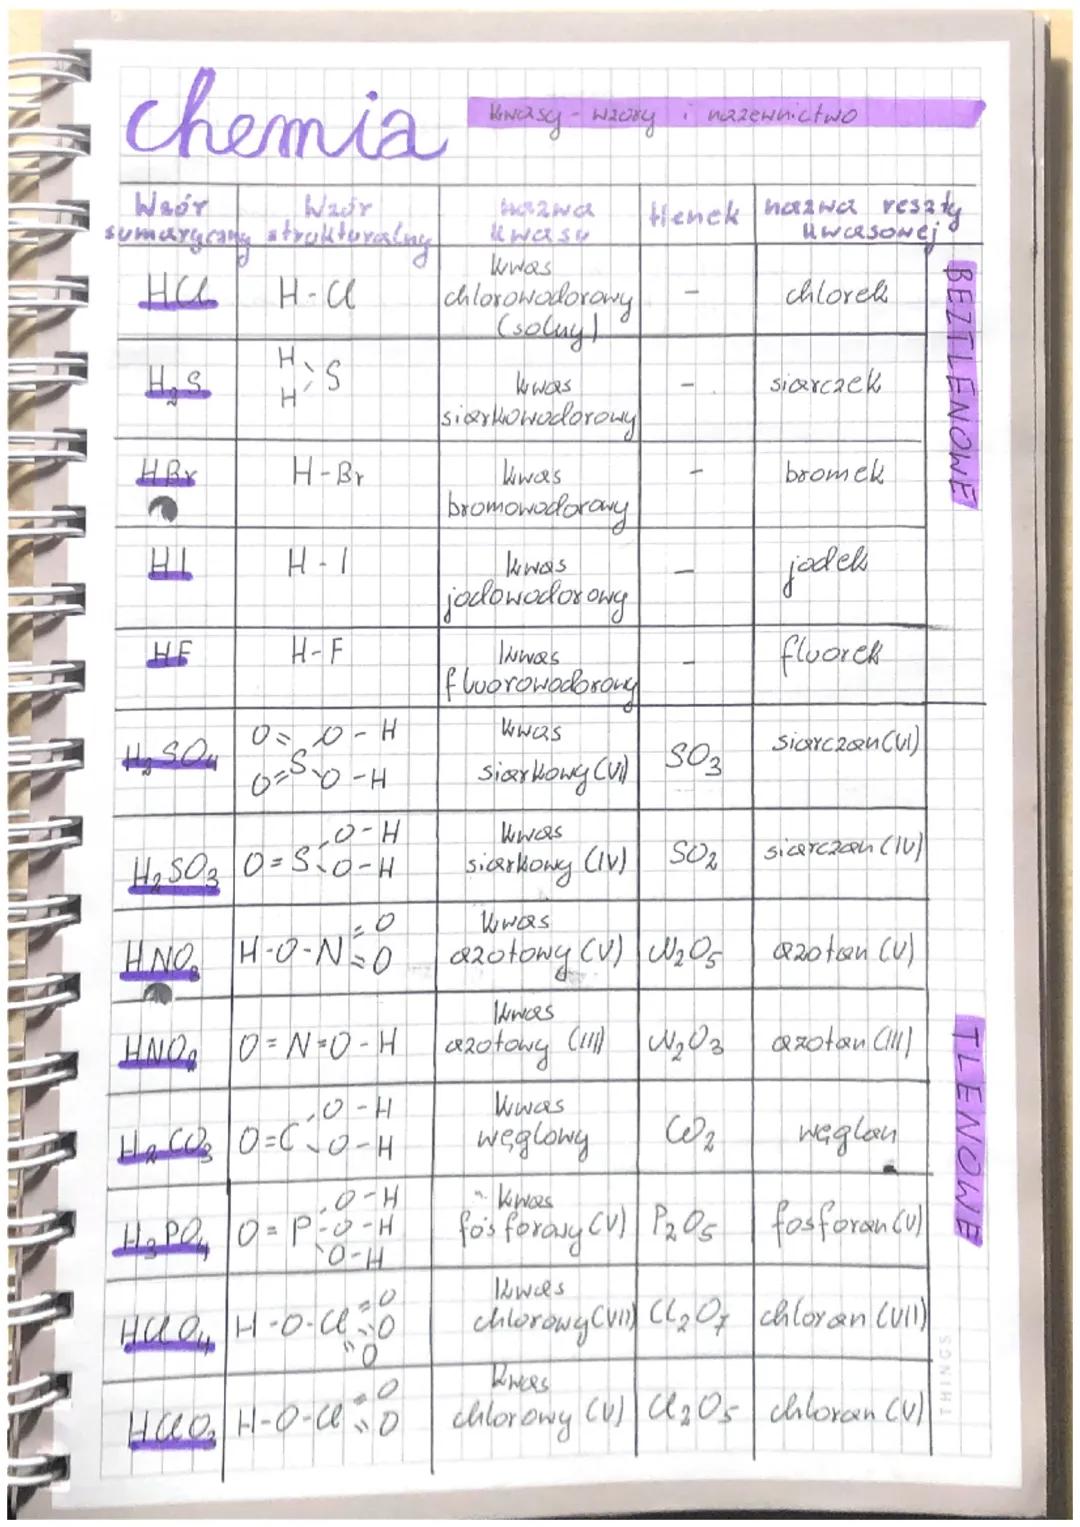 chemia
kwasy - wzory i nazewnictwo
Wzór sumaryczny
Wzór strukturalny
nazwa kwasu
tlenek
nazwa reszty kwasowej
BEZTLENOWE
HCl
H-Cl
kwas
chlorowodorowy
(solny)
-
chlorek
H₂S
H
H
S
kwas
siarkowodorowy
-
siarczek
HBr
H-Br
kwas
bromowodorowy
-
bromek
HI
H-I
kwas
jodowodorowy
-
jodek
HF
H-F
kwas
fluorowodorowy
-
fluorek
H₂SO₄
O= O-H
S
O= O-H
kwas
siarkowy (VI)
SO₃
siarczan (VI)
H₂SO₃
O-H
O=S O-H
kwas
siarkowy (IV)
SO₂
siarczan (IV)
HNO₃
=O
H-O-N=O
kwas
azotowy (V)
N₂O₅
azotan (V)
TLENOWE
HNO₂
O=N=O-H
kwas
azotowy (III)
N₂O₃
azotan (III)
H₂CO₃
O-H
O=C O-H
kwas
węglowy
CO₂
węglan
H₃PO₄
O-H
O=P-O-H
O-H
kwas
fosforowy (V)
P₂O₅
fosforan (V)
HClO₄
=O
H-O-Cl=O
=O
kwas
chlorowy (VII)
Cl₂O₇
chloran (VII)
HClO₃
=O
H-O-Cl=O
kwas
chlorowy (V)
Cl₂O₅
chloran (V)
THINGS